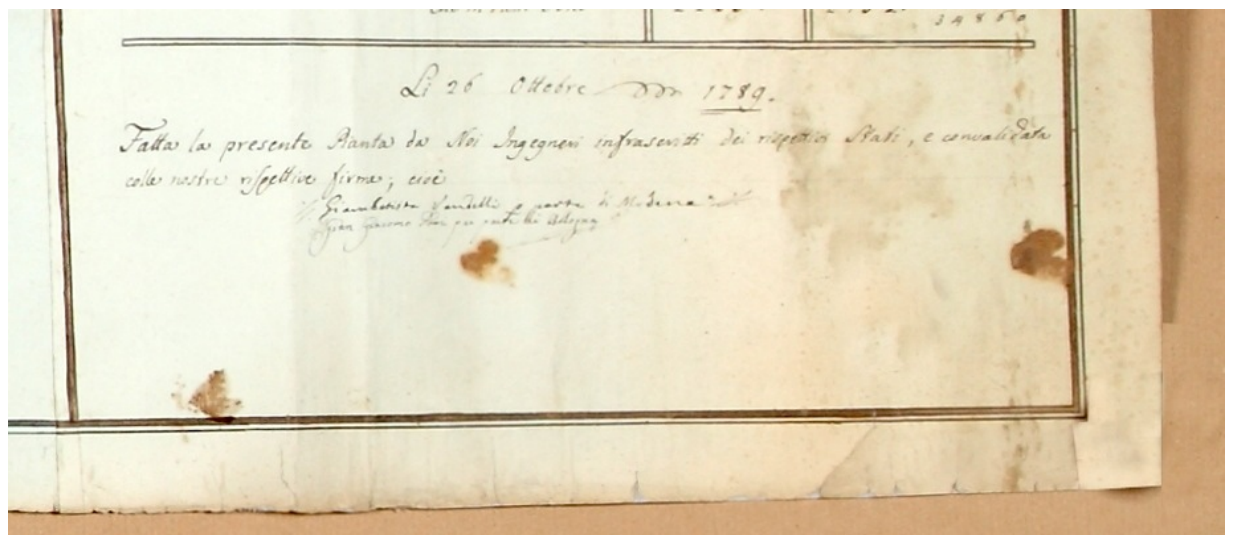 34860
Li 26 Ottobre 1789.
Fatta la presente Pianta da Noi Ingegneri infrascritti dei rispettivi Stati, e convalidata
colle nostre rispettive firme; cioè
Giambatista Vandelli p parte di Modena
Gian Giacomo per parte di Bologna